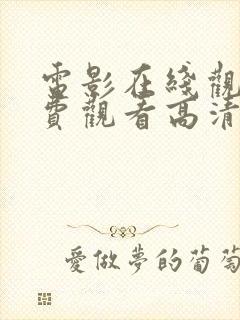 電影在綫觀
費觀看高清
愛做夢的葡萄